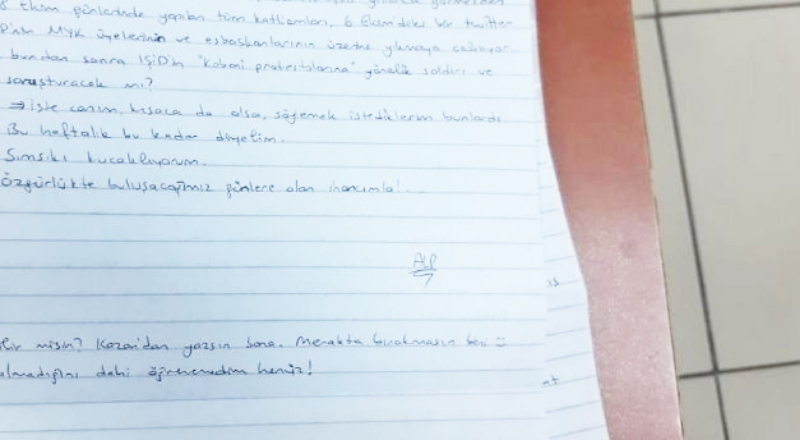 6 Ekim günlerinde yapılan tüm katliamları, 6 Ekim'deki bir twitter
MYK üyelerinin ve eşbaşkanlarının üzerine yıkmaya çalışıyor
bundan sonra IŞİD'in "Kobani protestolarına" yönelik saldırı ve
soruşturacak mı?
⇒ İşte canım, kısaca da olsa, söylemek istediklerim bunlardı.
Bu haftalık bu kadar diyelim.
Sımsıkı kucaklıyorum.
Özgürlükte buluşacağımız günlere olan inancımla!...
ALP
misin? Kozan'dan yazsın bana. Merakta bırakmasın beni
almadığını dahi öğrenemedim henüz!